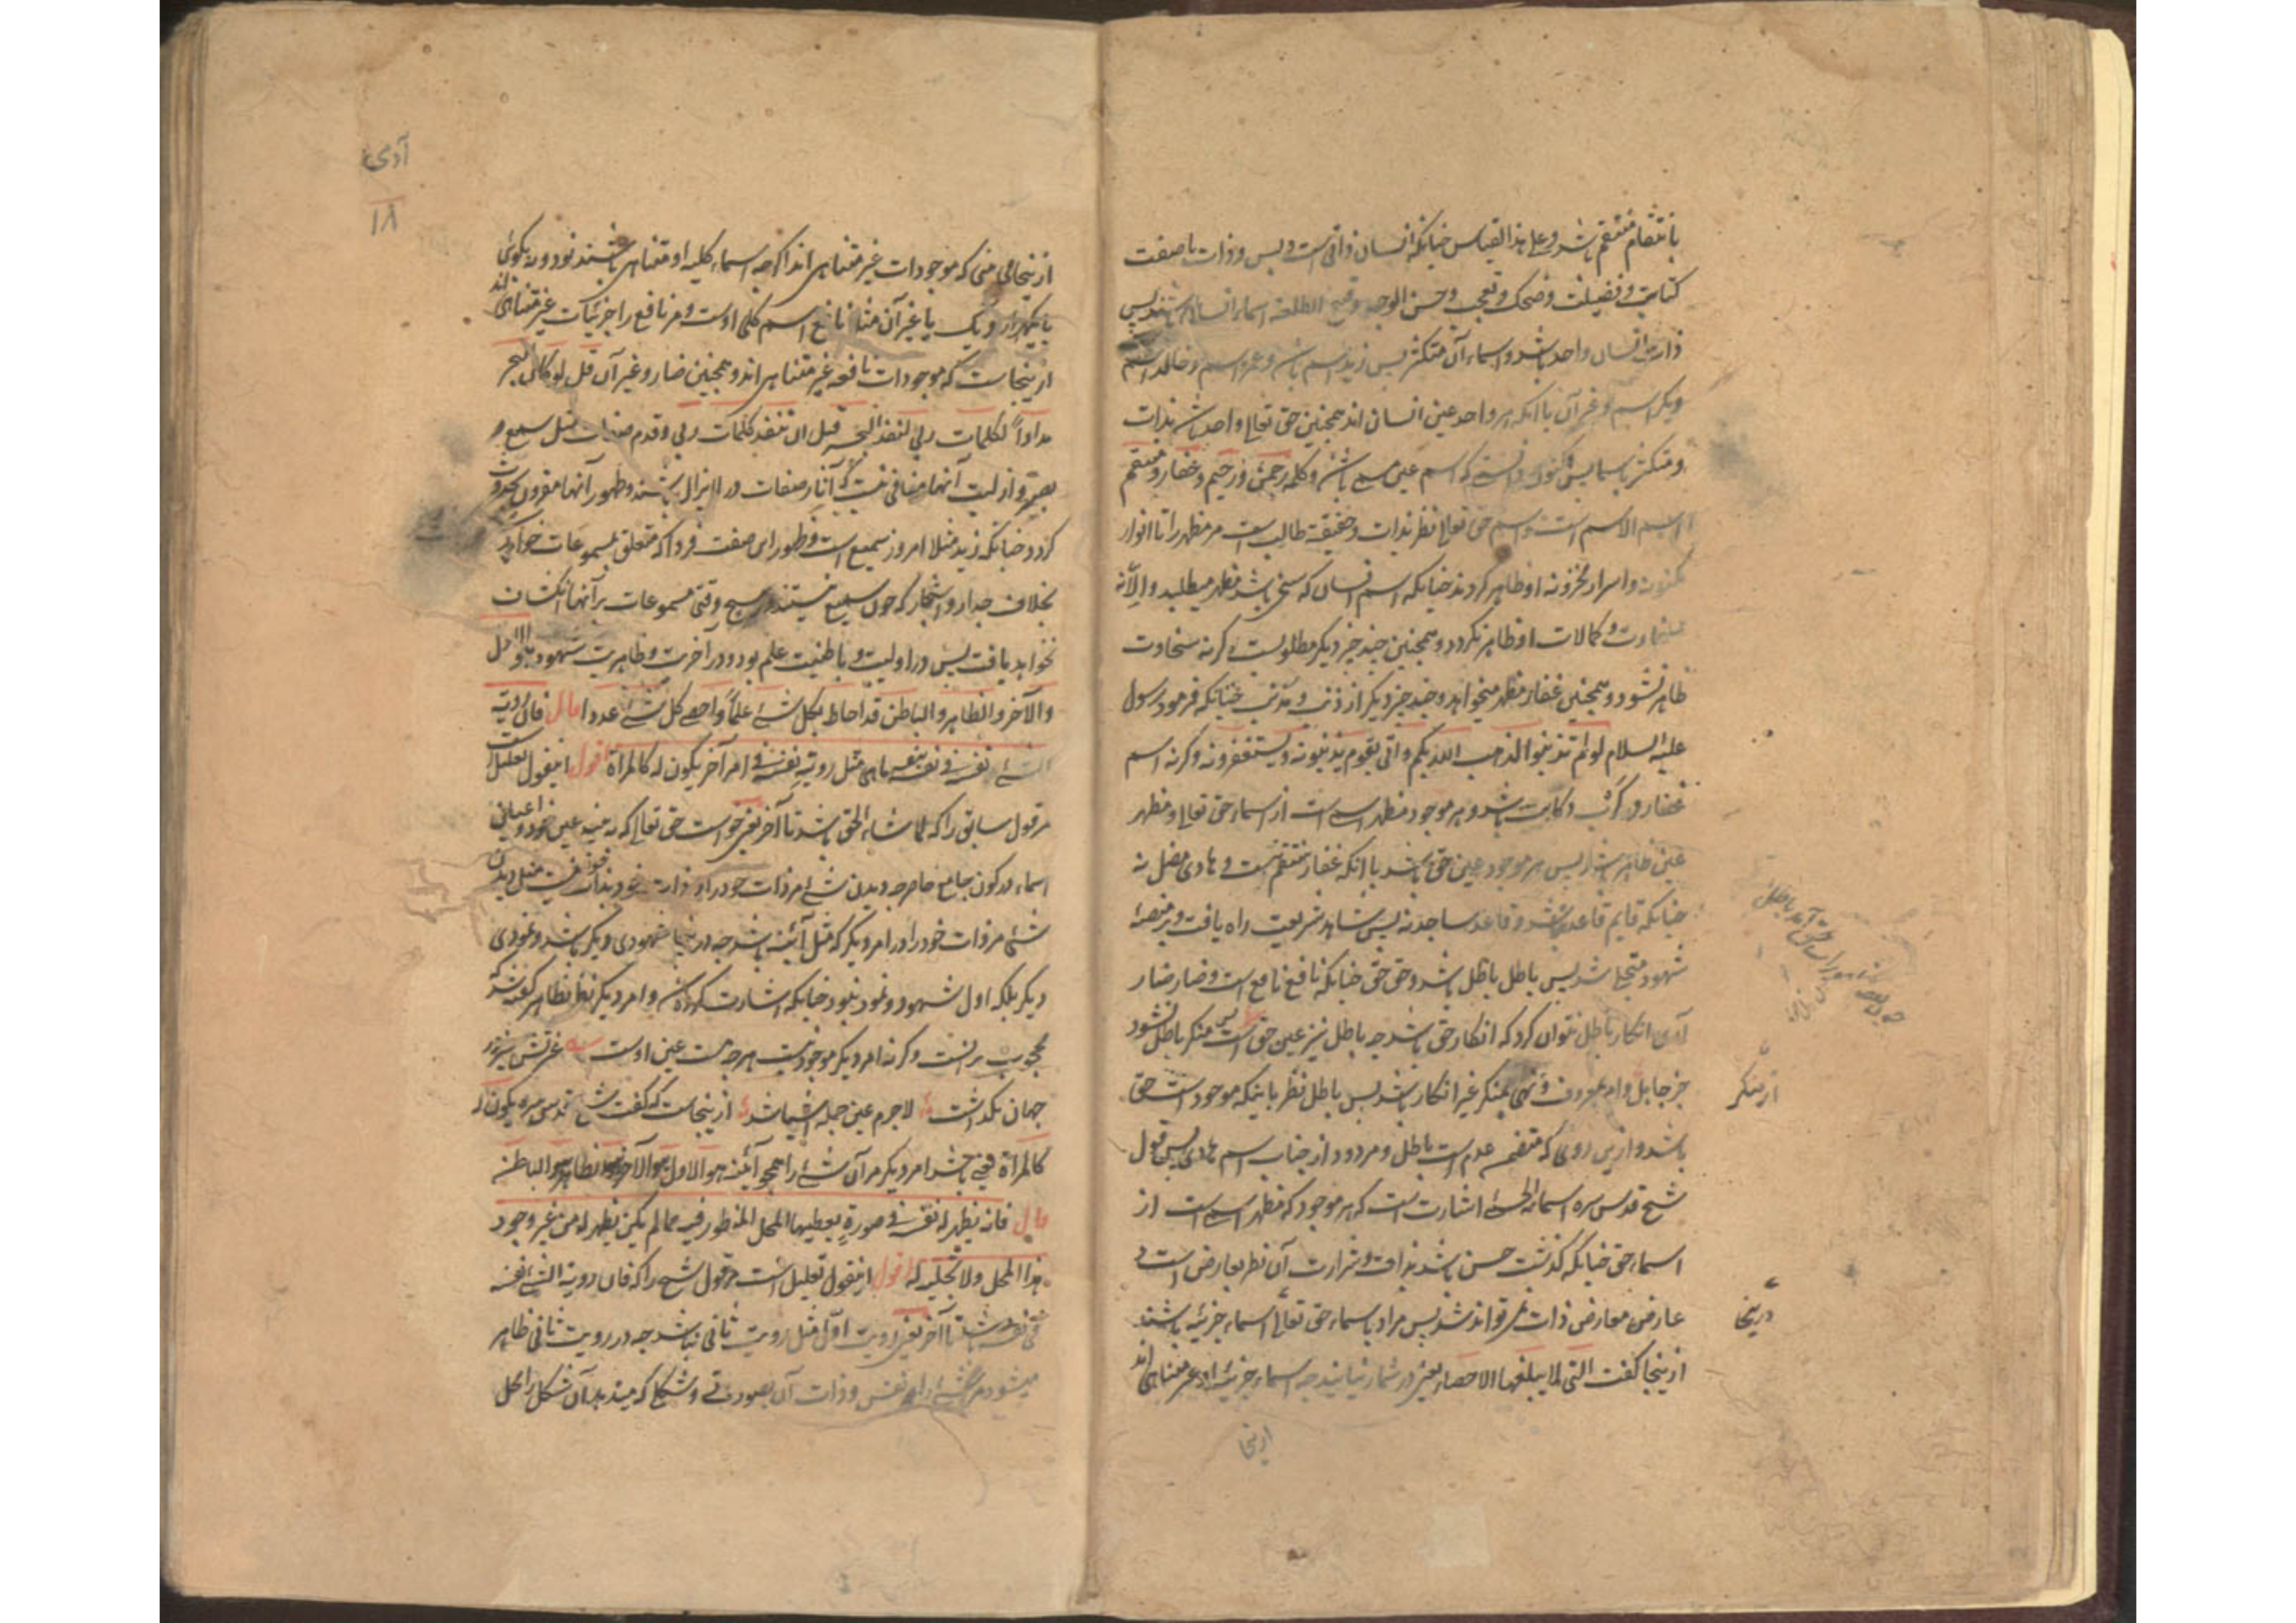 بانتقام منتقم باشد و علی هذا القیاس چنانکه انسان ذاتی است و بس و ذات با صفت
کتابت و فضیلت و ضحک و تعجب و حسن الوجه و قبیح الطلعه اسماء انسان باشند پس
ذات انسان واحد باشد و اسماء آن متکثر پس زید اسم باشد و عمرو اسم و خالد اسم
و بکر اسم و غیر آن با آنکه هر واحد عین انسان اند همچنین حق تعالی واحد باشد بذات
و متکثر باسما پس اکنون دانستی که اسم عین مسمی باشد و کلمه رحمن و رحیم و غفار و منتقم
اسم الاسم است و اسم حق تعالی نظر بذات و حقیقة طالب است مر مظهر را تا انوار
مکنونه و اسرار مخزونه او ظاهر کردند چنانکه اسم انسان که سخی باشد مظهر میطلبد و الا نه
سخاوت و کمالات او ظاهر نکردد و همچنین چند چیز دیکر مطلوبست و کرنه سخاوت
ظاهر نشود و همچنین غفار مظهر میخواهد و چند چیز دیکر از ذنب و مذنب چنانکه فرمود رسول
علیه السلام لو لم تذنبوا لذهب الله بکم و اتی بقوم یذنبونه و یستغفرونه و کرنه اسم
غفار در باشد و هر موجود مظهر اسمی است از اسماء حق تعالی و مظهر
عین ظاهر است پس هر موجود عین حق باشد با آنکه غفار منتقم نیست و هادی مضل نه
چنانکه قایم قاعد نباشد و قاعد ساجد نه پس شاهد شریعت راه یافت و بر منصهٔ
شهود متجلی شد پس باطل باطل باشد و حق حق چنانکه نافع نافع است و ضار ضار
آری انکار باطل نتوان کرد که انکار حق باشد چه باطل نیز عین حق است پس منکر باطل نشود
جز جاهل و امر بمعروف و نهی بمنکر غیر انکار باشد پس باطل نظر باینکه موجود است حق
باشد و ازین روی که متضمن عدم است باطل و مردود از جناب اسم هادی پس قول
شیخ قدس سره اسمائه الحسنی اشارت است که هر موجود که مظهر اسمی است از
اسماء حق چنانکه گذشت حسن باشد بذات و شرارت آن نظر بعارض است و
عارض معارض ذات نتواند شد پس مراد باسماء حق تعالی اسماء جزئیه باشند
ازینجا گفت التی لا یبلغها الاحصاء یعنی در شمار نیایند چه اسماء جزئیه او غیر متناهی اند
ازینجا
از منکر
درینجا
آدمی
۱۸
ازینجا می منی که موجودات غیر متناهی اند اگرچه اسماء کلیه او متناهی باشند نود و نه بکوئی
یا یکهزار و یک یا غیر آن مثلا نافع اسم کلی اوست و مر نافع را جزئیات غیر متناهی اند
ازینجاست که موجودات نافعه غیر متناهی اند و همچنین ضار و غیر آن قل لو کان البحر
مدادا لکلمات ربی لنفد البحر قبل ان تنفد کلمات ربی و قدم صفات مثل سمیع و
بصیر و ازلیت آنها منافی نیست که آثار صفات در لایزال باشند و ظهور آنها مقرون بحدوث
کردد چنانکه زید مثلا امروز سمیع است و ظهور این صفت فردا که متعلق بمسموعات خواهد
بخلاف جدار و اشجار که چون سمیع نیستند در هیچ وقتی مسموعات بر آنها انکشاف
نخواهد یافت پس در اولیت و باطنیت علم بود و در آخرت و ظاهریت شهود هو الاول
والآخر والظاهر والباطن قد احاط بکل شئ علما و احصی کل شئ عددا قال فان رویة
الشئ نفسه فی نفسه ما هی مثل رویة نفسه فی امر آخر یکون له کالمرآة اقول اینقول تعلیل است
مر قول سابق را که لما شاء الحق باشد تا آخر یعنی خواست حق تعالی که به بیند عین خود و اعیان
اسماء در کون جامع حاصر چه دیدن شئ مر ذات خود را در ذات خود بذات خود نیست مثل دیدن
شئ مر ذات خود را در امر دیکر که مثل آئینه باشد چه درینجا شهودی دیکر باشد و نمودی
دیکر بلکه اول شهود و نمود نبود چنانکه اشارت کرده شد و امر دیکر نظر بظاهر کفته شد که
محجوب بر آنست و کرنه امر دیکر موجود نیست هر چه هست عین اوست غیرتش غیر در
جهان نکذاشت لاجرم عین جمله اشیا شد ازینجاست که گفت شیخ قدس سره یکون له
کالمرآة یعنی باشد امر دیکر مر آن شئ را همچو آئینه هو الاول هو الآخر هو الظاهر هو الباطن
قال فانه یظهر له نفسه فی صورة یعطیها المحل المنظور فیه مما لم یکن یظهر له من غیر وجود
هذا المحل ولا تجلیه له اقول اینقول تعلیل است مر قول شیخ را که فان رویة الشئ نفسه
فی نفسه باشد تا آخر یعنی رویت اول مثل رویت ثانی نباشد چه در رویت ثانی ظاهر
میشود مر شئ را نفس و ذات آن بصورتی و شکلی که میدهد آن شکل را محل